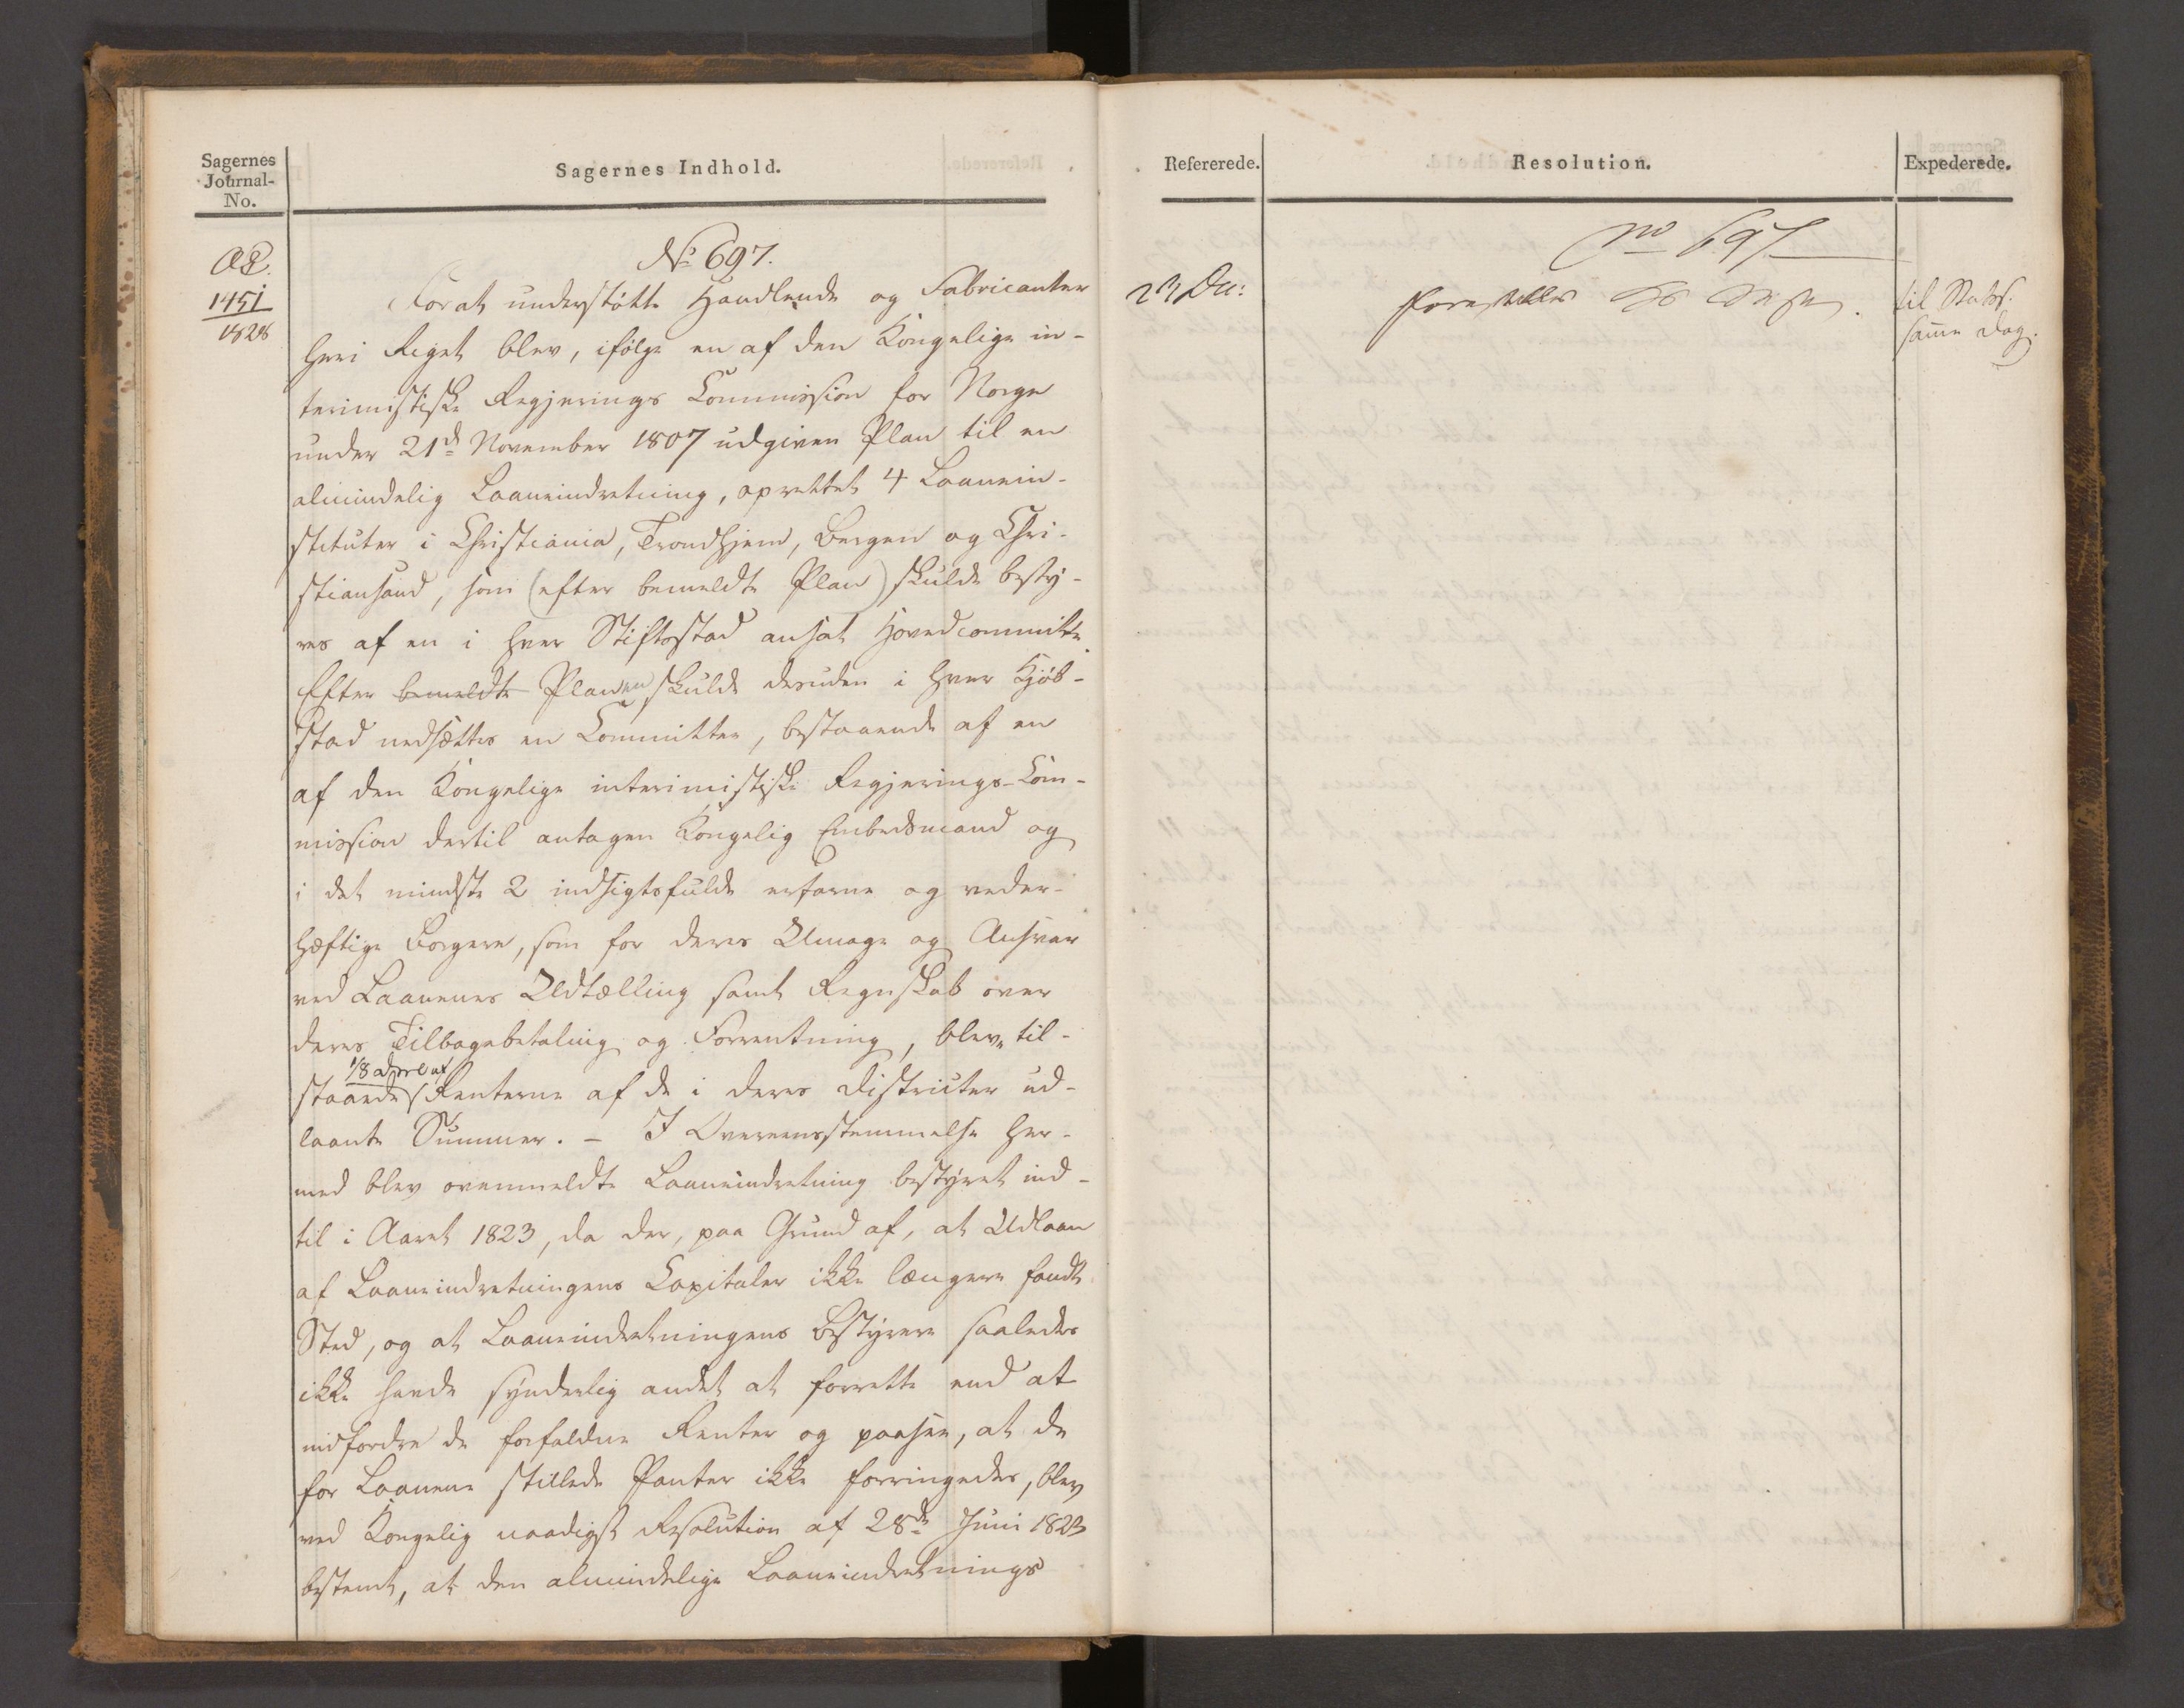 Sagernes
Journal-
No.
Sagernes Indhold.
1451
1828
No 697.
For at understøtte Handlende og Fabricanter
heri Riget blev, ifølge en af den Kongelige in-
terimistiske Regjerings Commission for Norge
under 21de November 1807 udgiven Plan til en
almindelig Laaneindretning, oprettet 4 Laanein-
stituter i Christiania, Trondhjem, Bergen og Chri-
stiansand, som (efter bemeldte Plan) skulde besty-
res af en i hver Stiftsstad ansat Hovedcommitte.
Efter bemeldte Planen skulde desuden i hver Kjøb-
stad nedsættes en Committee, bestaaende af en
af den Kongelige interimistiske Regjerings-Com-
mission dertil antagen Kongelig Embedsmand og
i det mindste 2 indsigtsfulde erfarne og veder-
hæftige Borgere, som for deres Umage og Ansvar
ved Laanenes Udtælling samt Regnskab over
deres Tilbagebetaling og Forrentning, bleve til-
1/8 Deel af
staaede Renterne af de i deres Districter ud-
laante Summer. – I Overeensstemmelse her-
med blev ovenmeldte Laaneindretning bestyret ind-
til i Aaret 1823, da der, paa Grund af, at Udlaan
af Laaneindretningens Capitaler ikke længere fandt
Sted, og at Laaneindretningens Bestyrere saaledes
ikke havde synderlig andet at forrette end at
indfordre de forfaldne Renter og paasee, at de
for Laanene stillede Panter ikke forringedes, blev
ved Kongelig naadigst Resolution af 28de Juni 1823
bestemt, at den almindelige Laaneindretnings
Refererede.
Resolution.
Expederede.
No 697
23 Dec:
Forestilles
til Statss.
samme Dag.